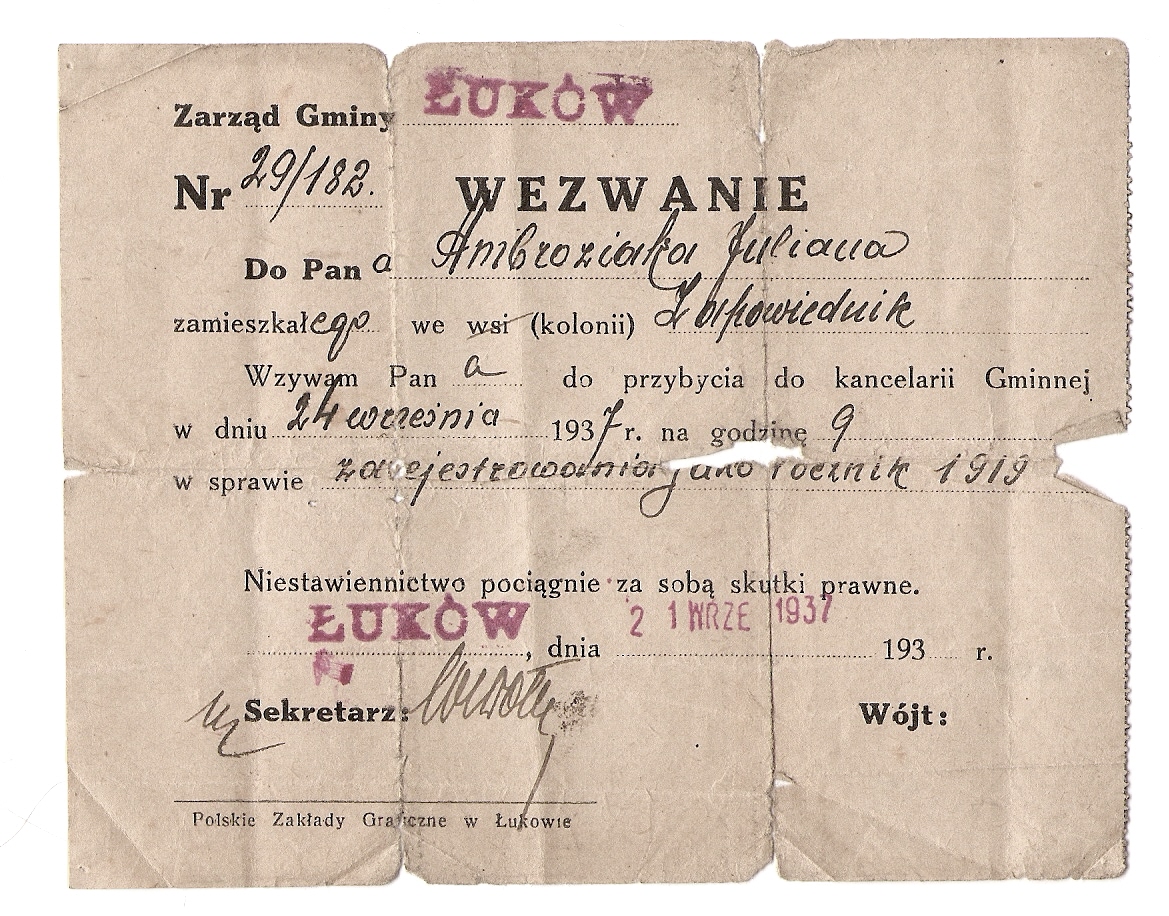 Zarząd Gminy ŁUKÓW
Nr 29/182. WEZWANIE
Do Pana Ambroziaka Juliana
zamieszkałego we wsi (kolonii) Zapowiednik
Wzywam Pana do przybycia do kancelarii Gminnej
w dniu 24 września 1937 r. na godzinę 9
w sprawie zarejestrowania jako rocznik 1919
Niestawiennictwo pociągnie za sobą skutki prawne.
ŁUKÓW, dnia 21 WRZE 1937 193 r.
Sekretarz: Wójt:
Polskie Zakłady Graficzne w Łukowie